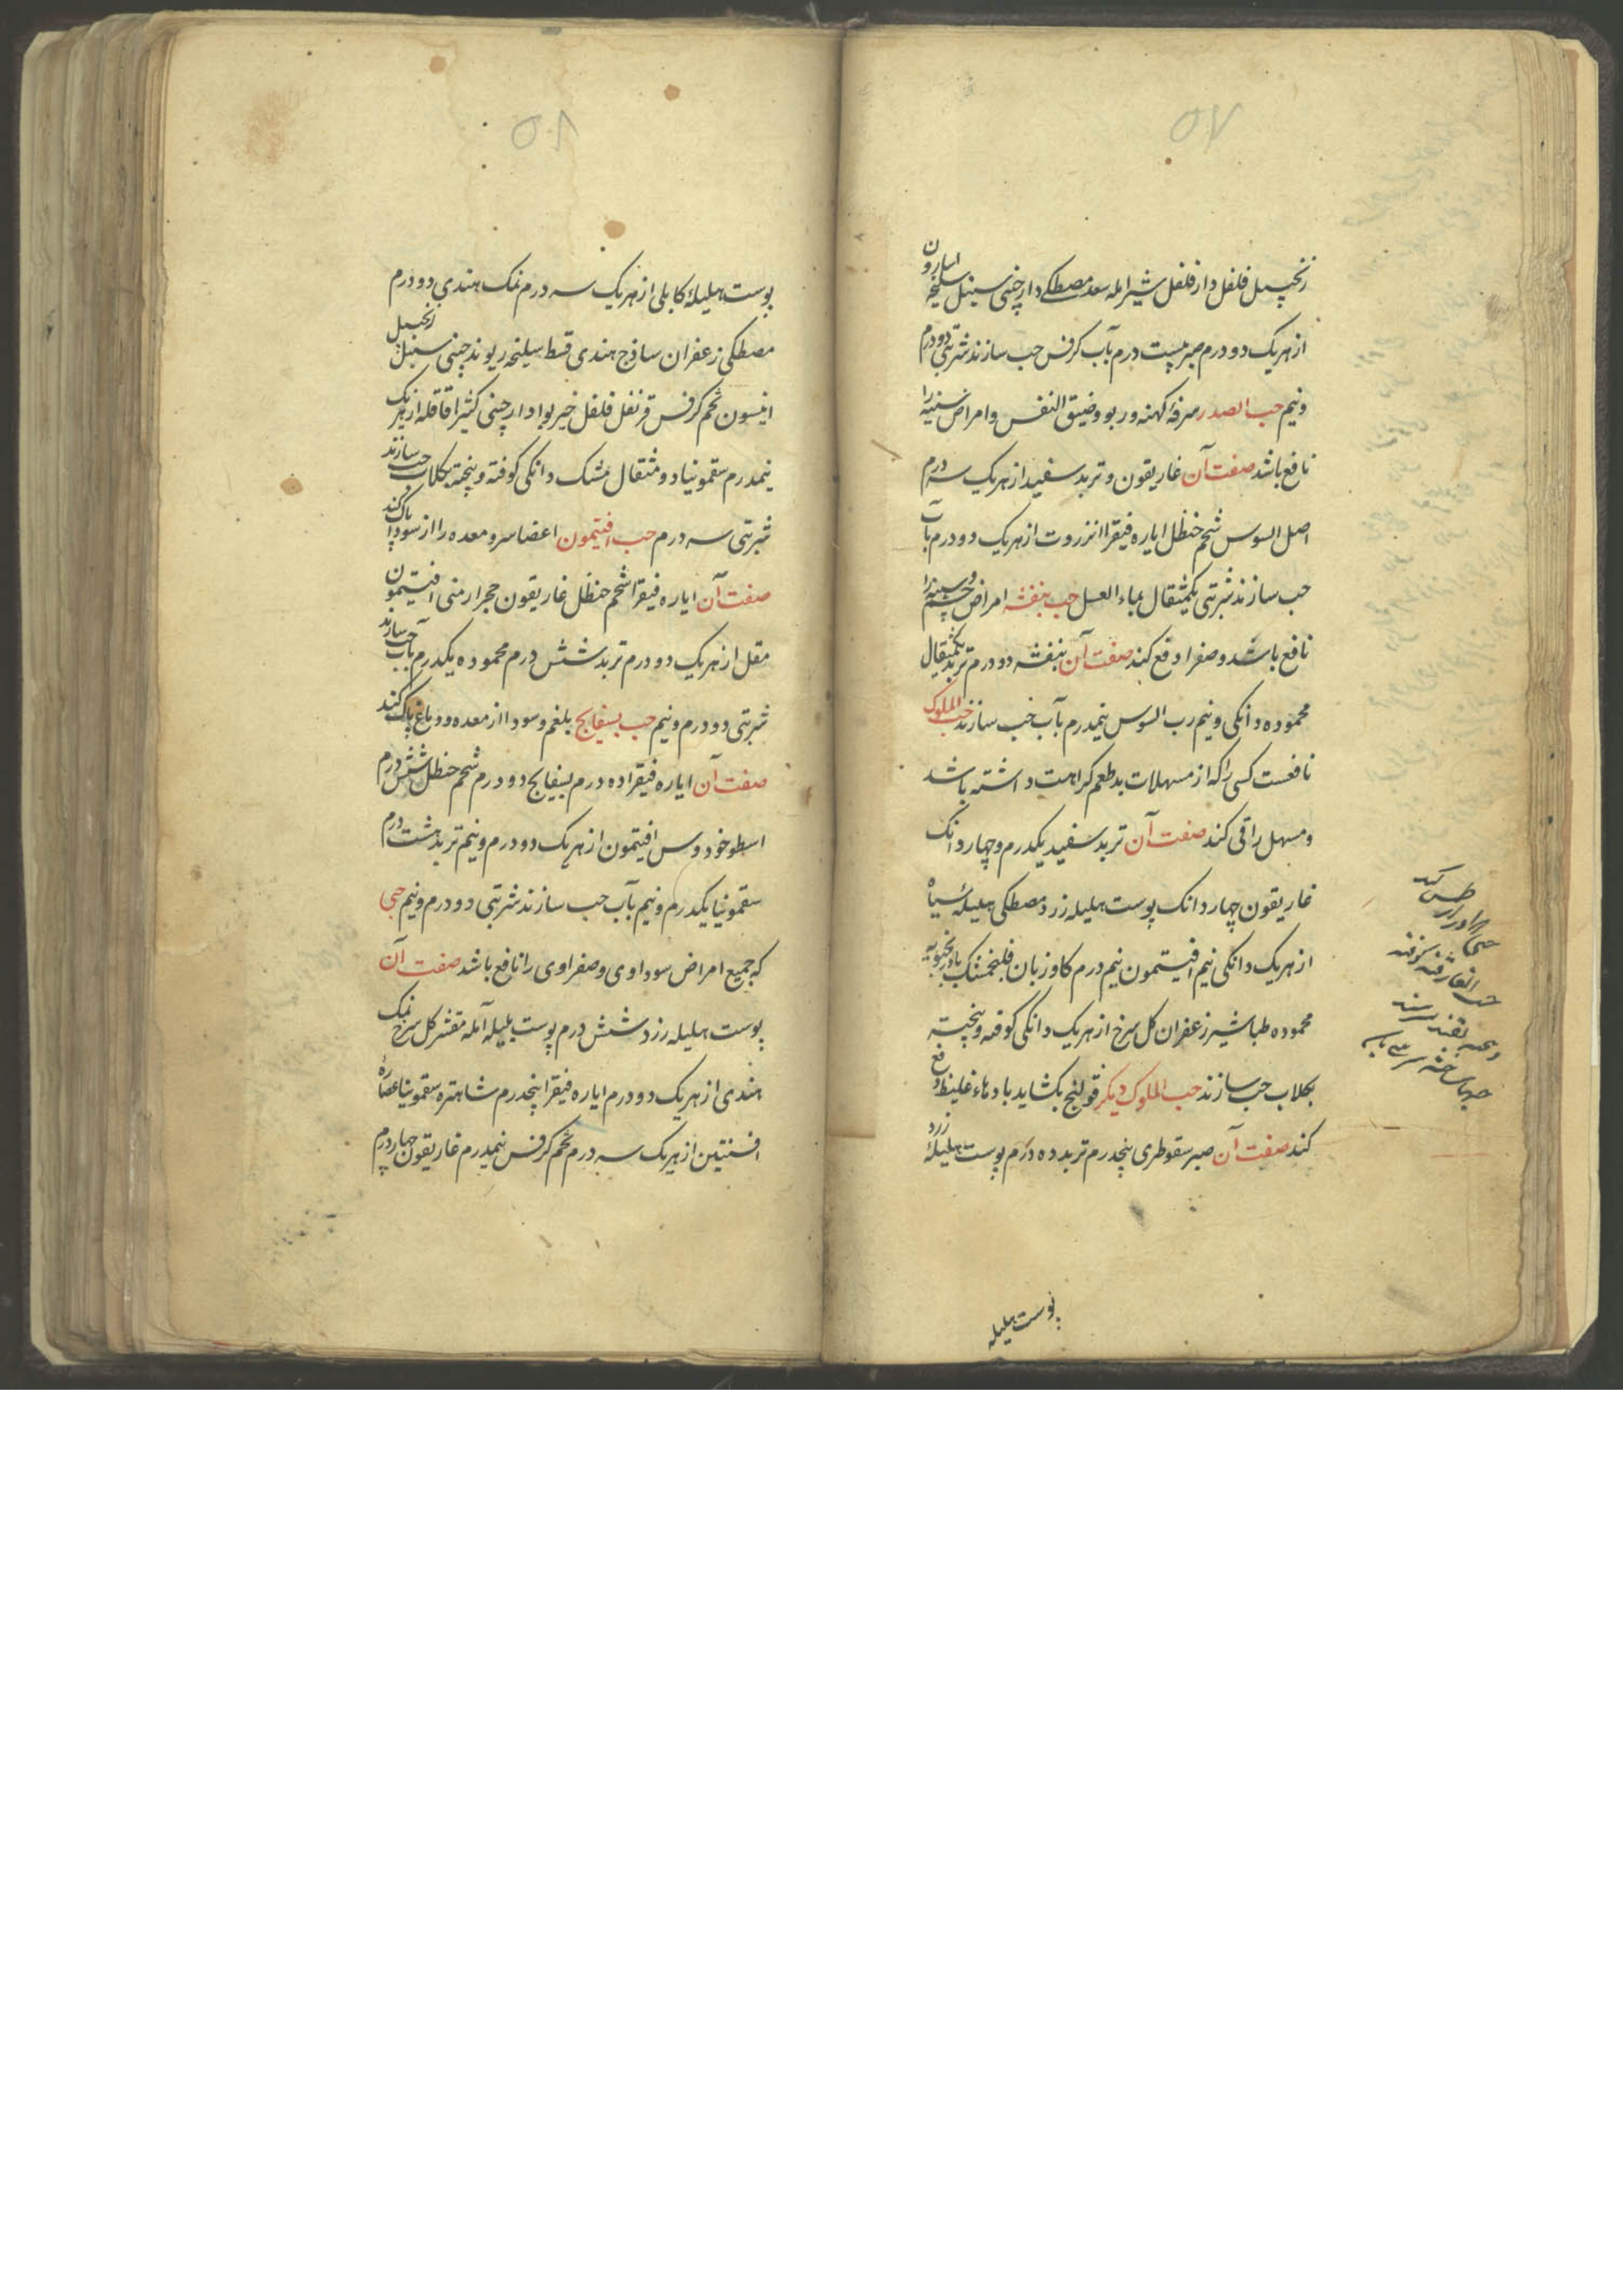 ۵۷
زنجپیل فلفل دارفلفل شیراملہ سعد مصطکے دارچینی سنبل سلیخہ اسارون
از هریک دو درم صبر بیست درم بآب کرفس حب سازند شربتی دو درم
ونیم حب الصدر سرفۀ کهنه و ربو و ضیق النفس و امراض سینه را
نافع باشد صفت آن غاریقون و تربد سفید از هریک سه درم
اصل السوس شحم حنظل ایاره فیقرا انزروت از هریک دو درم بآب
حب سازند شربتی یکمثقال بماء العسل حب بنفشه امراض چشم و سینه را
نافع باشد و صفرا دفع کند صفت آن بنفشه دو درم تربد یکمثقال
محموده دانکی و نیم رب السوس نیمدرم بآب حب سازند حب الملوک
نافعست کسی را که از مسهلات بدطعم کراهت داشته باشد
و مسهل را قی کند صفت آن تربد سفید یکدرم و چهار دانک
غاریقون چهار دانک پوست هلیله زرد مصطکی هلیلۀ سیاه
از هریک دانکی نیم افیتمون نیم درم کاوزبان فلنجمشک بادرنجبویه
محموده طباشیر زعفران کل سرخ از هریک دانکی کوفته و پخته
بجلاب حب سازند حب الملوک دیکر قولنج بکشاید بادهاء غلیظ دفع
کند صفت آن صبر سقوطری پنجدرم تربد ده درم پوست هلیلۀ زرد
پوست هلیله
۵۸
پوست هلیلۀ کابلی از هریک سه درم نمک هندی دو درم
مصطکی زعفران ساذج هندی قسط سلیخه ریوند چینی سنبل زنجبیل
انیسون تخم کرفس قرنفل فلفل خیربوا دارچینی کثیرا قاقله از هریک
نیمدرم سقمونیا دو مثقال مشک دانکی کوفته و پخته بجلاب حب سازند
شربتی سه درم حب افیتمون اعضا سر و معده را از سودا پاک کند
صفت آن ایاره فیقرا شحم حنظل غاریقون حجر ارمنی افیتمون
مقل از هریک دو درم تربد شش درم محموده یکدرم بآب حب سازند
شربتی دو درم و نیم حب بسفایج بلغم و سودا از معده و دماغ پاک کند
صفت آن ایاره فیقرا ده درم بسفایج دو درم شحم حنظل شش درم
اسطوخودوس افیتمون از هریک دو درم و نیم تربد هشت درم
سقمونیا یکدرم و نیم بآب حب سازند شربتی دو درم و نیم حبی
که جمیع امراض سوداوی و صفراوی را نافع باشد صفت آن
پوست هلیله زرد شش درم پوست بلیله آمله مقشر کل سرخ نمک
هندی از هریک دو درم ایاره فیقرا پنجدرم شاهتره سقمونیا عصاره
افسنتین از هریک سه درم تخم کرفس نیمدرم غاریقون چهار درم